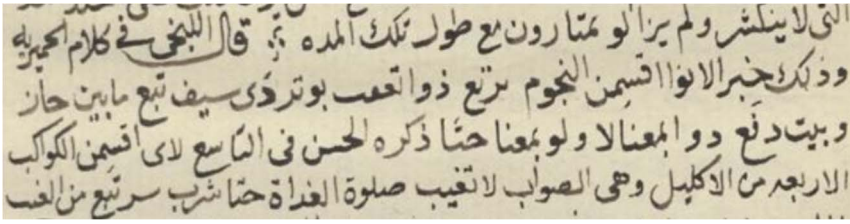 التى لا ينكسر ولم يزالو يمتارون مع طول تلك المده قال اللبخى فى كلام الحميريه
وذلك خبر الانوا اقسمن النجوم برتع ذو القعب بوتر ذى سيف تبع ما بين حاز
وبيت دفع دو ابمعنا لا ولو بمعنا حتا ذكره الحسن فى التاسع لاى اقسمن الكواكب
الاربعه من الاكليل وهى الصواب لا تغيب صلوة الغداة حتا شرب سر تبع من الغب